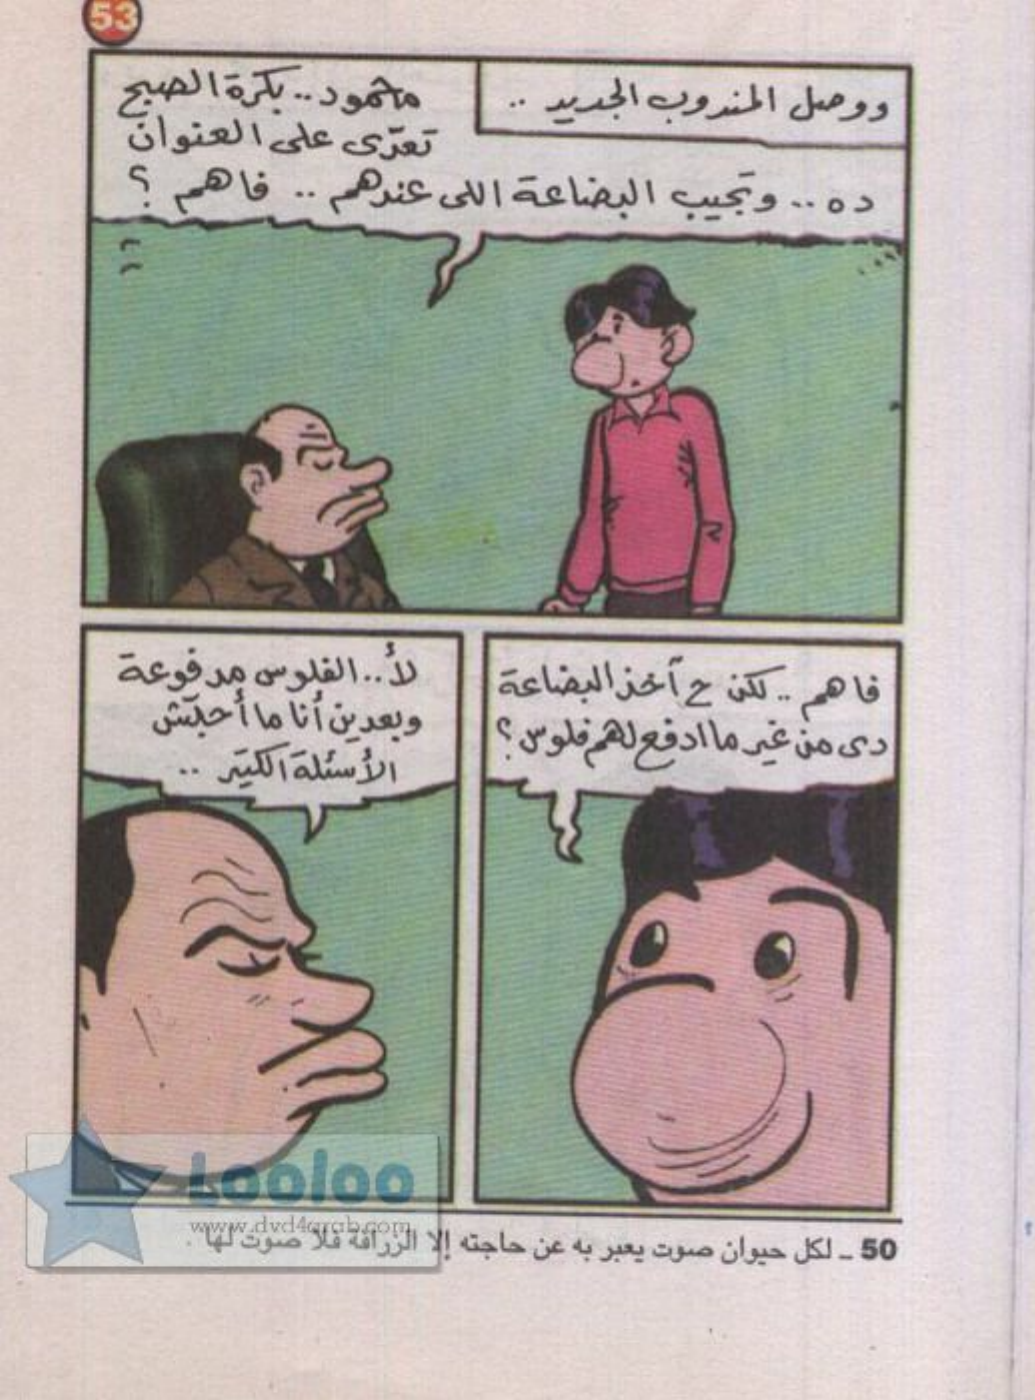 53
ووصل المندوب الجديد ..
محمود .. بكرة الصبح
تعدّى على العنوان
ده .. وتجيب البضاعة اللى عندهم .. فاهم ؟
فاهم .. لكن ح آخذ البضاعة
دى من غير ما ادفع لهم فلوس ؟
لأ .. الفلوس مدفوعة
وبعدين أنا ما أحبّش
الأسئلة الكتير ..
Looloo
www.dvd4arab.com
50 ــ لكل حيوان صوت يعبر به عن حاجته إلا الزرافة فلا صوت لها .